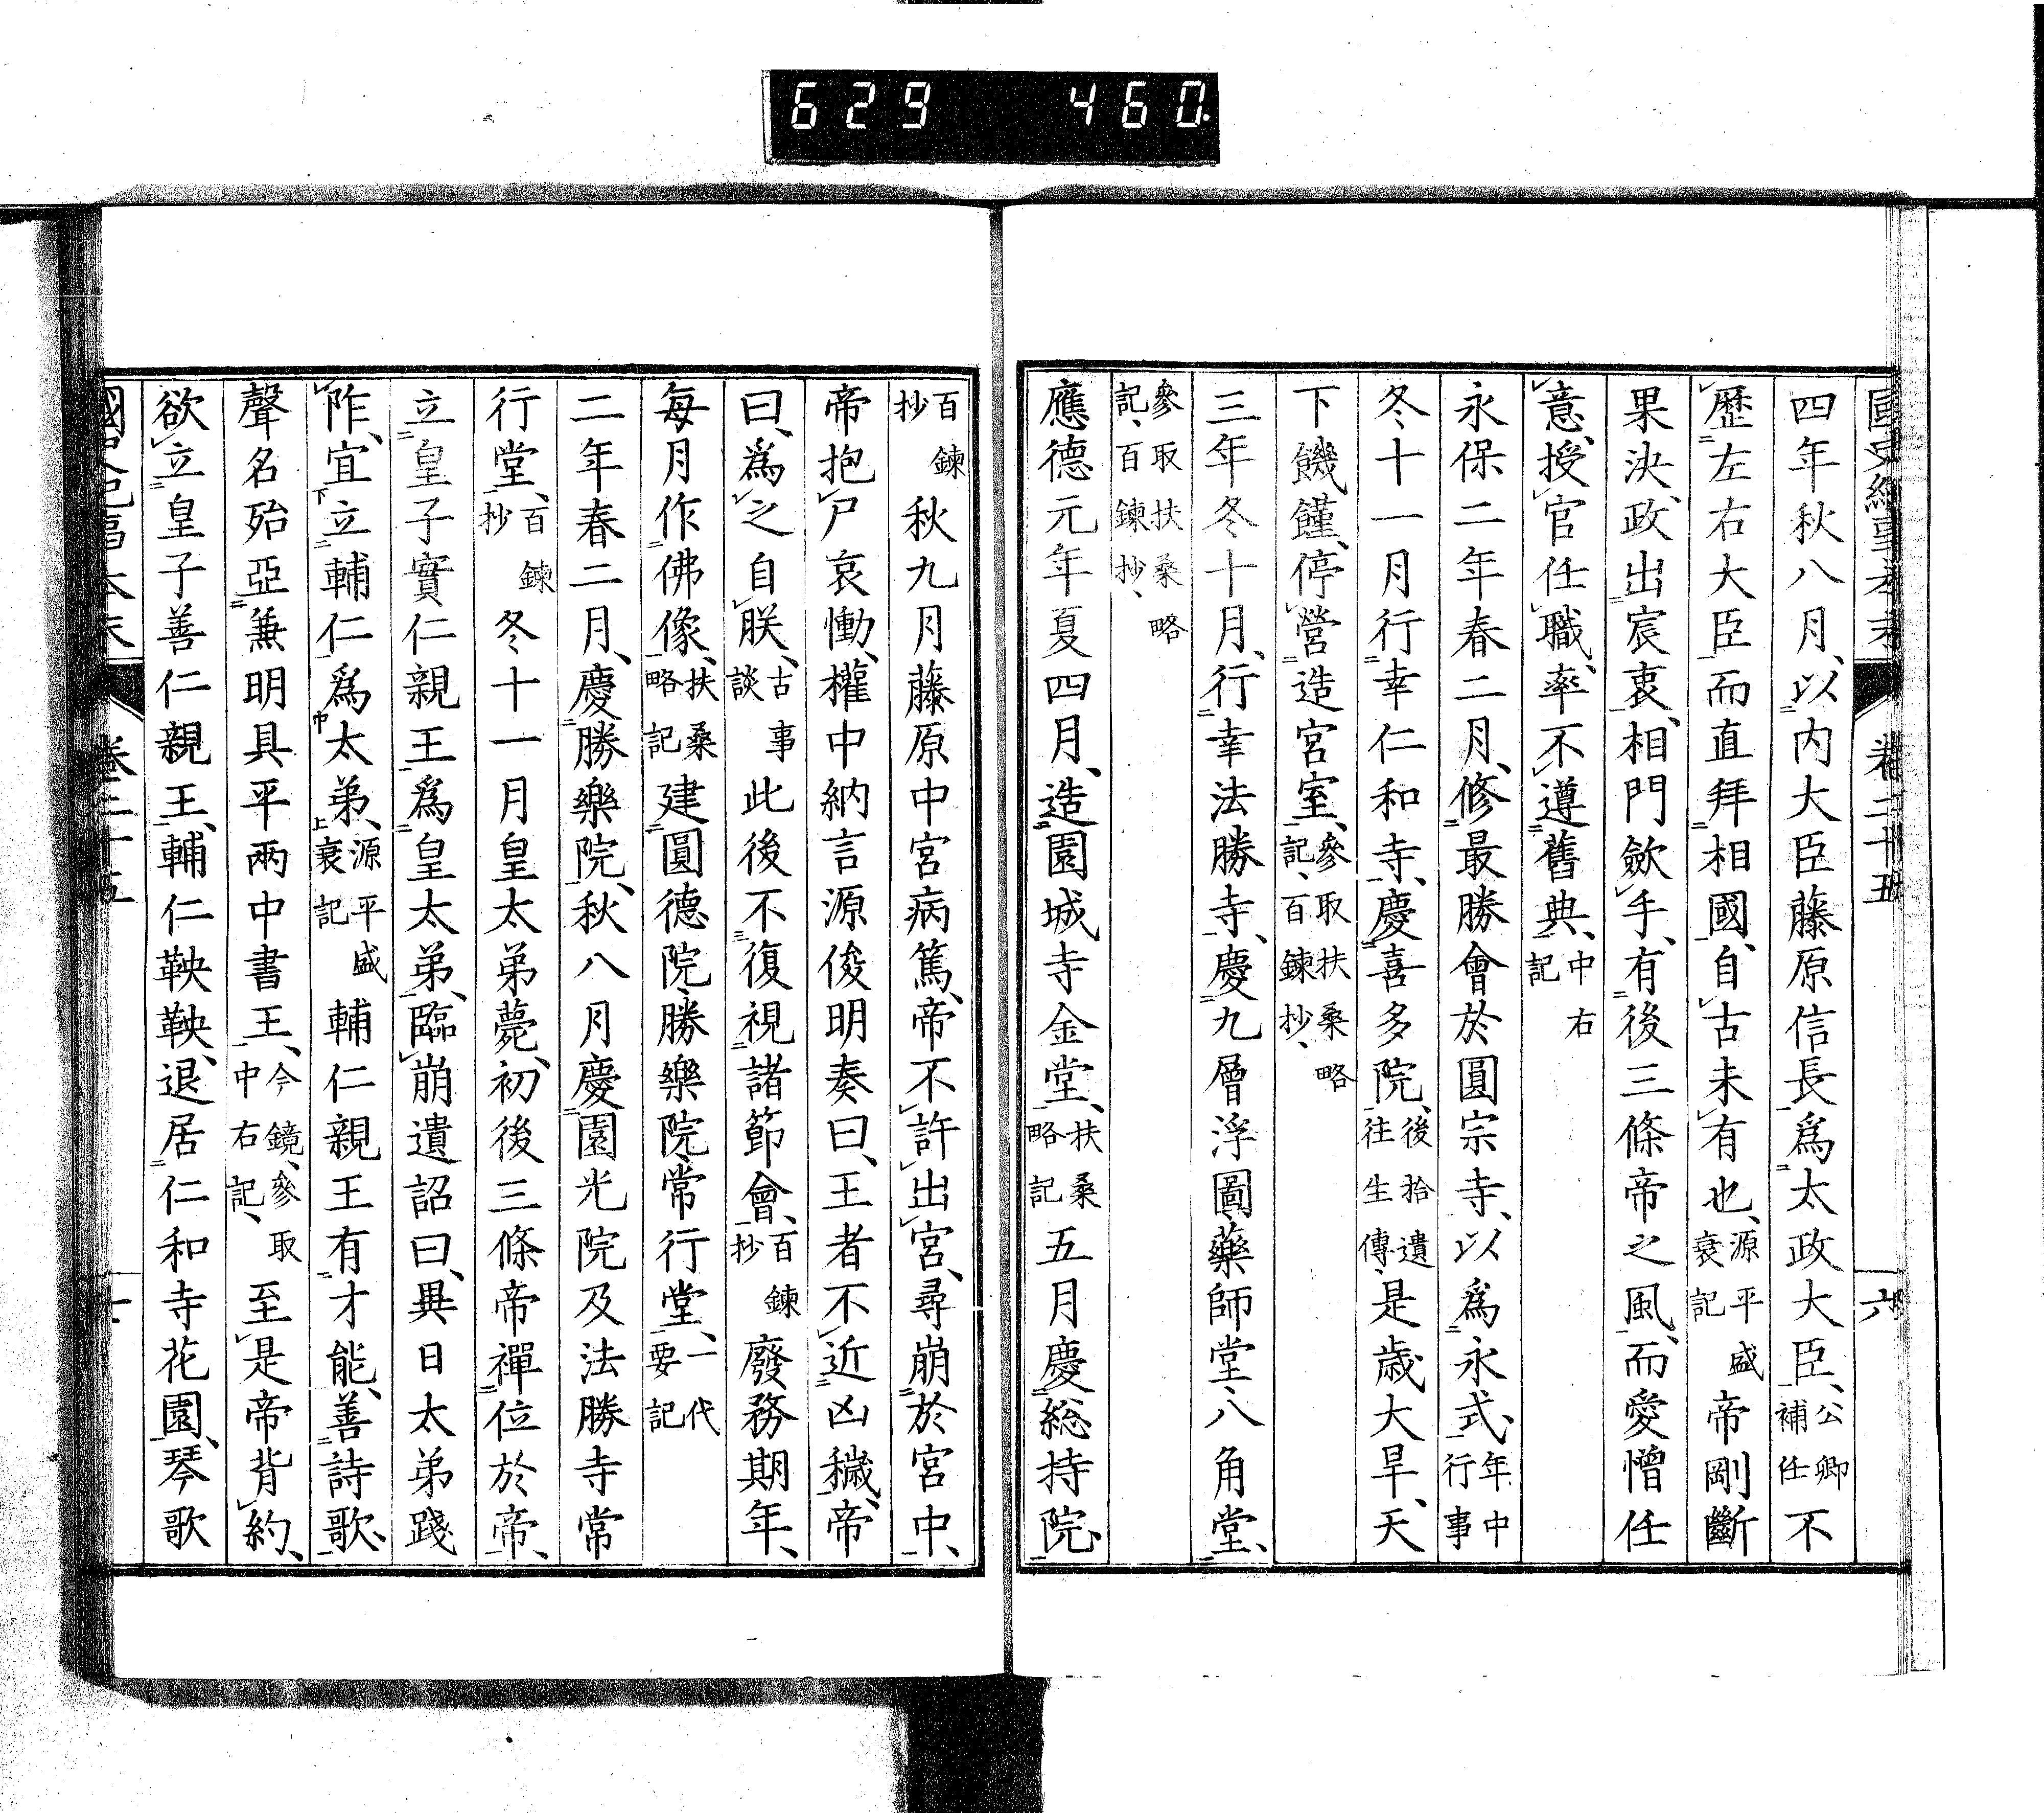 629 460.
國史紀事本末 卷二十五 六
四年秋八月、以内大臣藤原信長爲太政大臣、公卿補任不
歴左右大臣而直拜相國、自古未有也、源平盛衰記帝剛斷
果決、政出宸衷、相門歛手、有後三條帝之風、而愛憎任
意、授官任職、率不遵舊典、中右記
永保二年春二月、修最勝會於圓宗寺、以爲永式、年中行事
冬十一月行幸仁和寺、慶喜多院、後拾遺往生傳、是歳大旱、天
下饑饉、停營造宮室、參取扶桑略記、百鍊抄、
三年冬十月、行幸法勝寺、慶九層浮圖藥師堂八角堂、
參取扶桑略記、百鍊抄、
應德元年夏四月、造園城寺金堂、扶桑略記五月慶総持院、
百鍊抄秋九月藤原中宮病篤、帝不許出宮、尋崩於宮中、
帝抱尸哀慟、權中納言源俊明奏曰、王者不近凶穢、帝
曰、爲之自朕、古事談此後不復視諸節會、百鍊抄廢務期年、
每月作佛像、扶桑略記建圓德院、勝樂院常行堂、一代要記
二年春二月、慶勝樂院、秋八月慶園光院及法勝寺常
行堂、百鍊抄冬十一月皇太弟薨、初後三條帝禪位於帝、
立皇子實仁親王爲皇太弟、臨崩遺詔曰、異日太弟踐
阼、宜下立輔仁爲中太弟上、源平盛衰記輔仁親王有才能、善詩歌、
聲名殆亞兼明具平兩中書王、今鏡、參取中右記、至是帝背約、
欲立皇子善仁親王、輔仁鞅鞅、退居仁和寺花園、琴歌
國史紀事本末 卷二十五 七